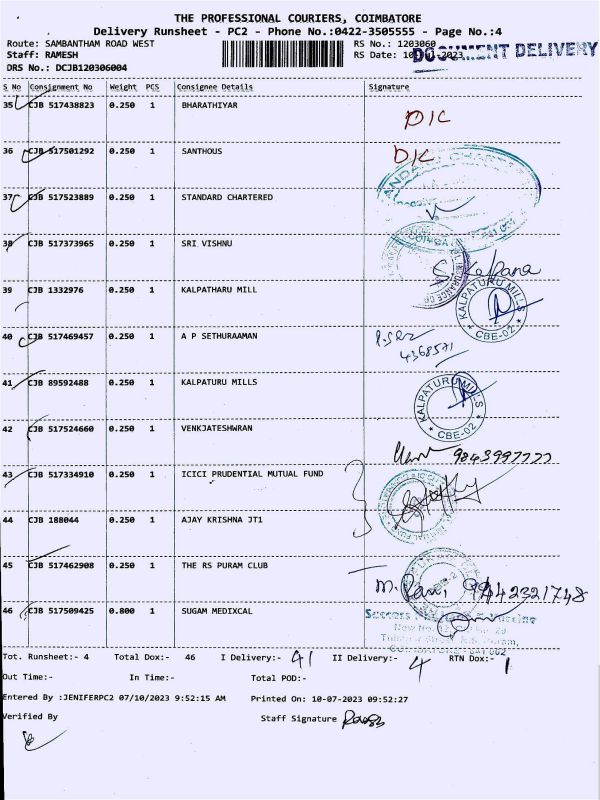 THE PROFESSIONAL COURIERS, COIMBATORE
Delivery Runsheet - PC2 - Phone No.:0422-3505555 - Page No.:4
Route: SAMBANTHAM ROAD WEST RS No.: 1203060
DOCUMENT DELIVERY
Staff: RAMESH RS Date: 10-Jul-2023
DRS No.: DCJB120306004
S No Consignment No Weight PCS Consignee Details Signature
35 CJB 517438823 0.250 1 BHARATHIYAR D/C
36 CJB 517501292 0.250 1 SANTHOUS D/C
37 CJB 517523889 0.250 1 STANDARD CHARTERED
38 CJB 517373965 0.250 1 SRI VISHNU S. Kalpana
39 CJB 1332976 0.250 1 KALPATHARU MILL KALPATURU MILLS * CBE-02 *
40 CJB 517469457 0.250 1 A P SETHURAAMAN 4368571
41 CJB 89592488 0.250 1 KALPATURU MILLS KALPATURU MILLS * CBE-02 *
42 CJB 517524660 0.250 1 VENKJATESHWRAN 9843997777
43 CJB 517334910 0.250 1 ICICI PRUDENTIAL MUTUAL FUND
44 CJB 188044 0.250 1 AJAY KRISHNA JT1
45 CJB 517462908 0.250 1 THE RS PURAM CLUB M. Ravi, 9442321748
46 CJB 517509425 0.800 1 SUGAM MEDIXCAL
Tot. Runsheet:- 4 Total Dox:- 46 I Delivery:- 41 II Delivery:- 4 RTN Dox:- 1
Out Time:- In Time:- Total POD:-
Entered By :JENIFERPC2 07/10/2023 9:52:15 AM Printed On: 10-07-2023 09:52:27
Verified By Staff Signature